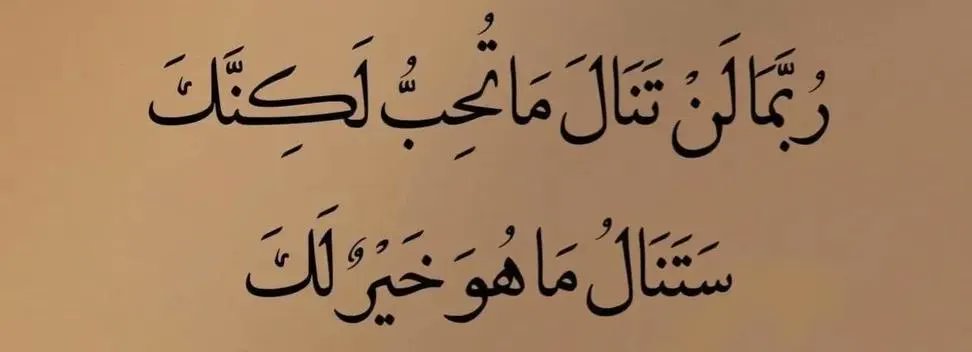 رُبَّمَا لَنْ تَنَالَ مَا تُحِبُّ لَكِنَّكَ
سَتَنَالُ مَا هُوَ خَيْرٌ لَكَ